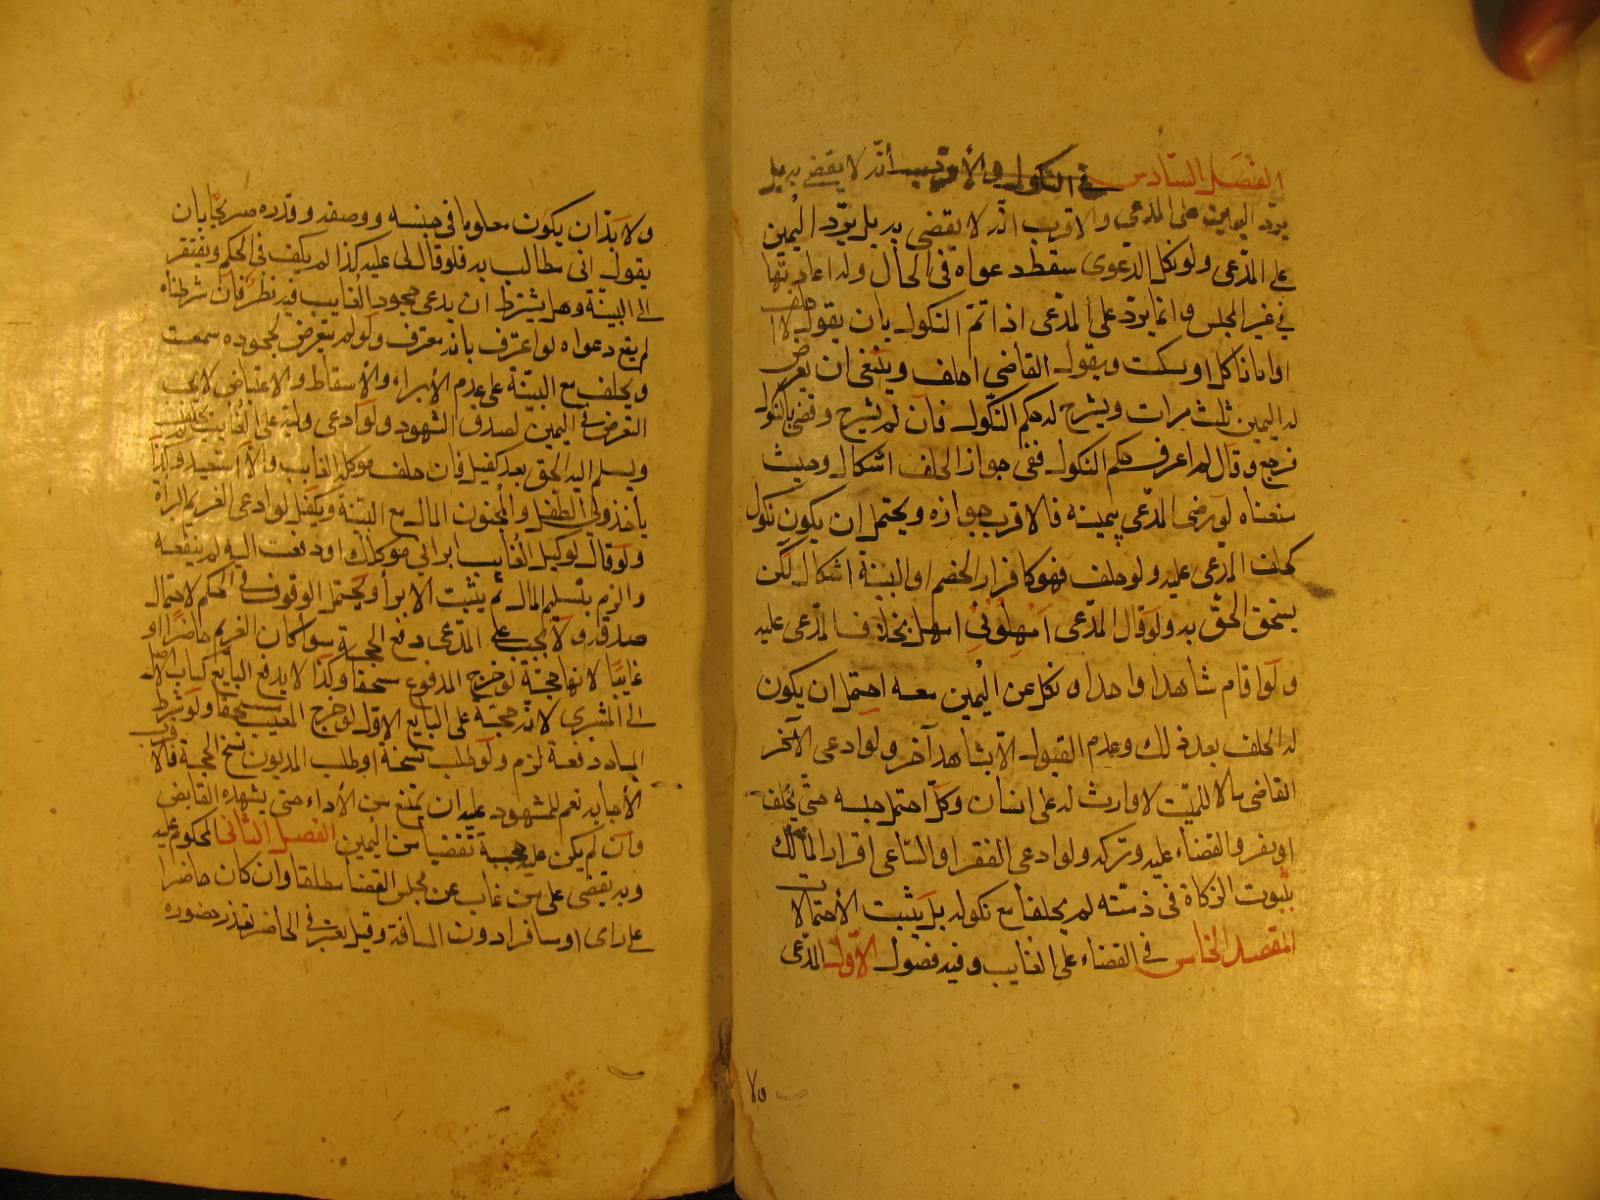 الفصل السادس في النكول والأقرب أنه لا يقضى به بل
يرد اليمين على المدعي والاقرب انه لا يقضى به بل يرد اليمين
على المدعى ولو نكل الدعوى سقط دعواه في الحال وله اعادتها
في غير المجلس وانما يرد على المدعى اذا تم النكول بان يقول لا احلف
او انا ناكل او سكت ويقول القاضي احلف وينبغى ان يعرض
له اليمين ثلث مرات ويشرح له حكم النكول فان لم يشرح وقضى بالنكول
فرجع وقال لم اعرف حكم النكول ففى جواز الحلف اشكال وحيث
منعناه لو رضى المدعى بيمينه فالاقرب جوازه ويحتمل ان يكون نكول
كحلف المدعى عليه ولو حلف فهو كاقرار الخصم او البينة اشكال لكن
يستحق الحق به ولو قال المدعى امهلونى امهل بخلاف المدعى عليه
ولو اقام شاهدا واحدا ونكل عن اليمين معه احتمل ان يكون
له الحلف بعد ذلك وعدم القبول الا بشاهد آخر ولو ادعى الآخر
القاضى مالا للميت لا وارث له على انسان ونكل احتمل حبسه حتى يحلف
او يقر والقضاء عليه وتركه ولو ادعى الفقرا او الساعى اقرار المالك
بثبوت الزكاة في ذمته لم يحلفا مع نكوله بل يثبت الأحتمالا
المقصد الخامس في القضاء على الغايب وفيه فصول الاول المدعى
٧٥
ولا بد ان يكون معلوما في جنسه ووصفه وقدره صريحا بان
يقول انى مطالب به فلو قال لى عليه كذا لم يكف في الحكم ويفتقر
الى البينة وهل يشترط ان يدعى جحود الغايب فيه نظر فان شرطناه
لم يقع دعواه لو اعترف بانه معترف ولو لم يتعرض لجحوده سمعت
ويحلف مع البينة على عدم الأبراء والأسقاط والاعتياض لا يجب
التعرض في اليمين لصدق الشهود ولو ادعى وكيله على الغايب
ويسلم اليه الحق بعد كفيل فان حلف موكل الغايب والا استعيد وكذا
يأخذ ولي الطفل والمجنون المال مع البينة ويكفل لو ادعى الغريم البراة
ولو قال لوكيل الغايب ابرأنى موكلك او دفعت اليه لم ينفعه
والزم بتسليم المال ثم يثبت الابرأ ويحتمل الوقوف في الحكم لاحتمال
صدقه ولا يجب على المدعى دفع الحجة سوأ كان الغريم حاضرا او
غايبا لانها حجة لو خرج المدفوع مستحقا وكذا لا يدفع البايع كتاب الاصل
الى المشترى لانه حجة على البايع الاول لو خرج المبيع مستحقا ولو شرط
المبادرة فعة لزم ولو طلب نسخة او طلب المديون نسخ الحجة فالاقرب
الأجابة نعم للمشهود عليه ان يمتنع من الأداء حتى يشهده القابض
وان لم يكن عليه حجة تفصيا من اليمين الفصل الثانى المحكوم عليه
وبه يقضى على من غاب عن مجلس القضا مطلقا وان كان حاضرا
على راى او مسافرا دون المسافة وقيل يعتبر في الحاضر تعذر حضوره